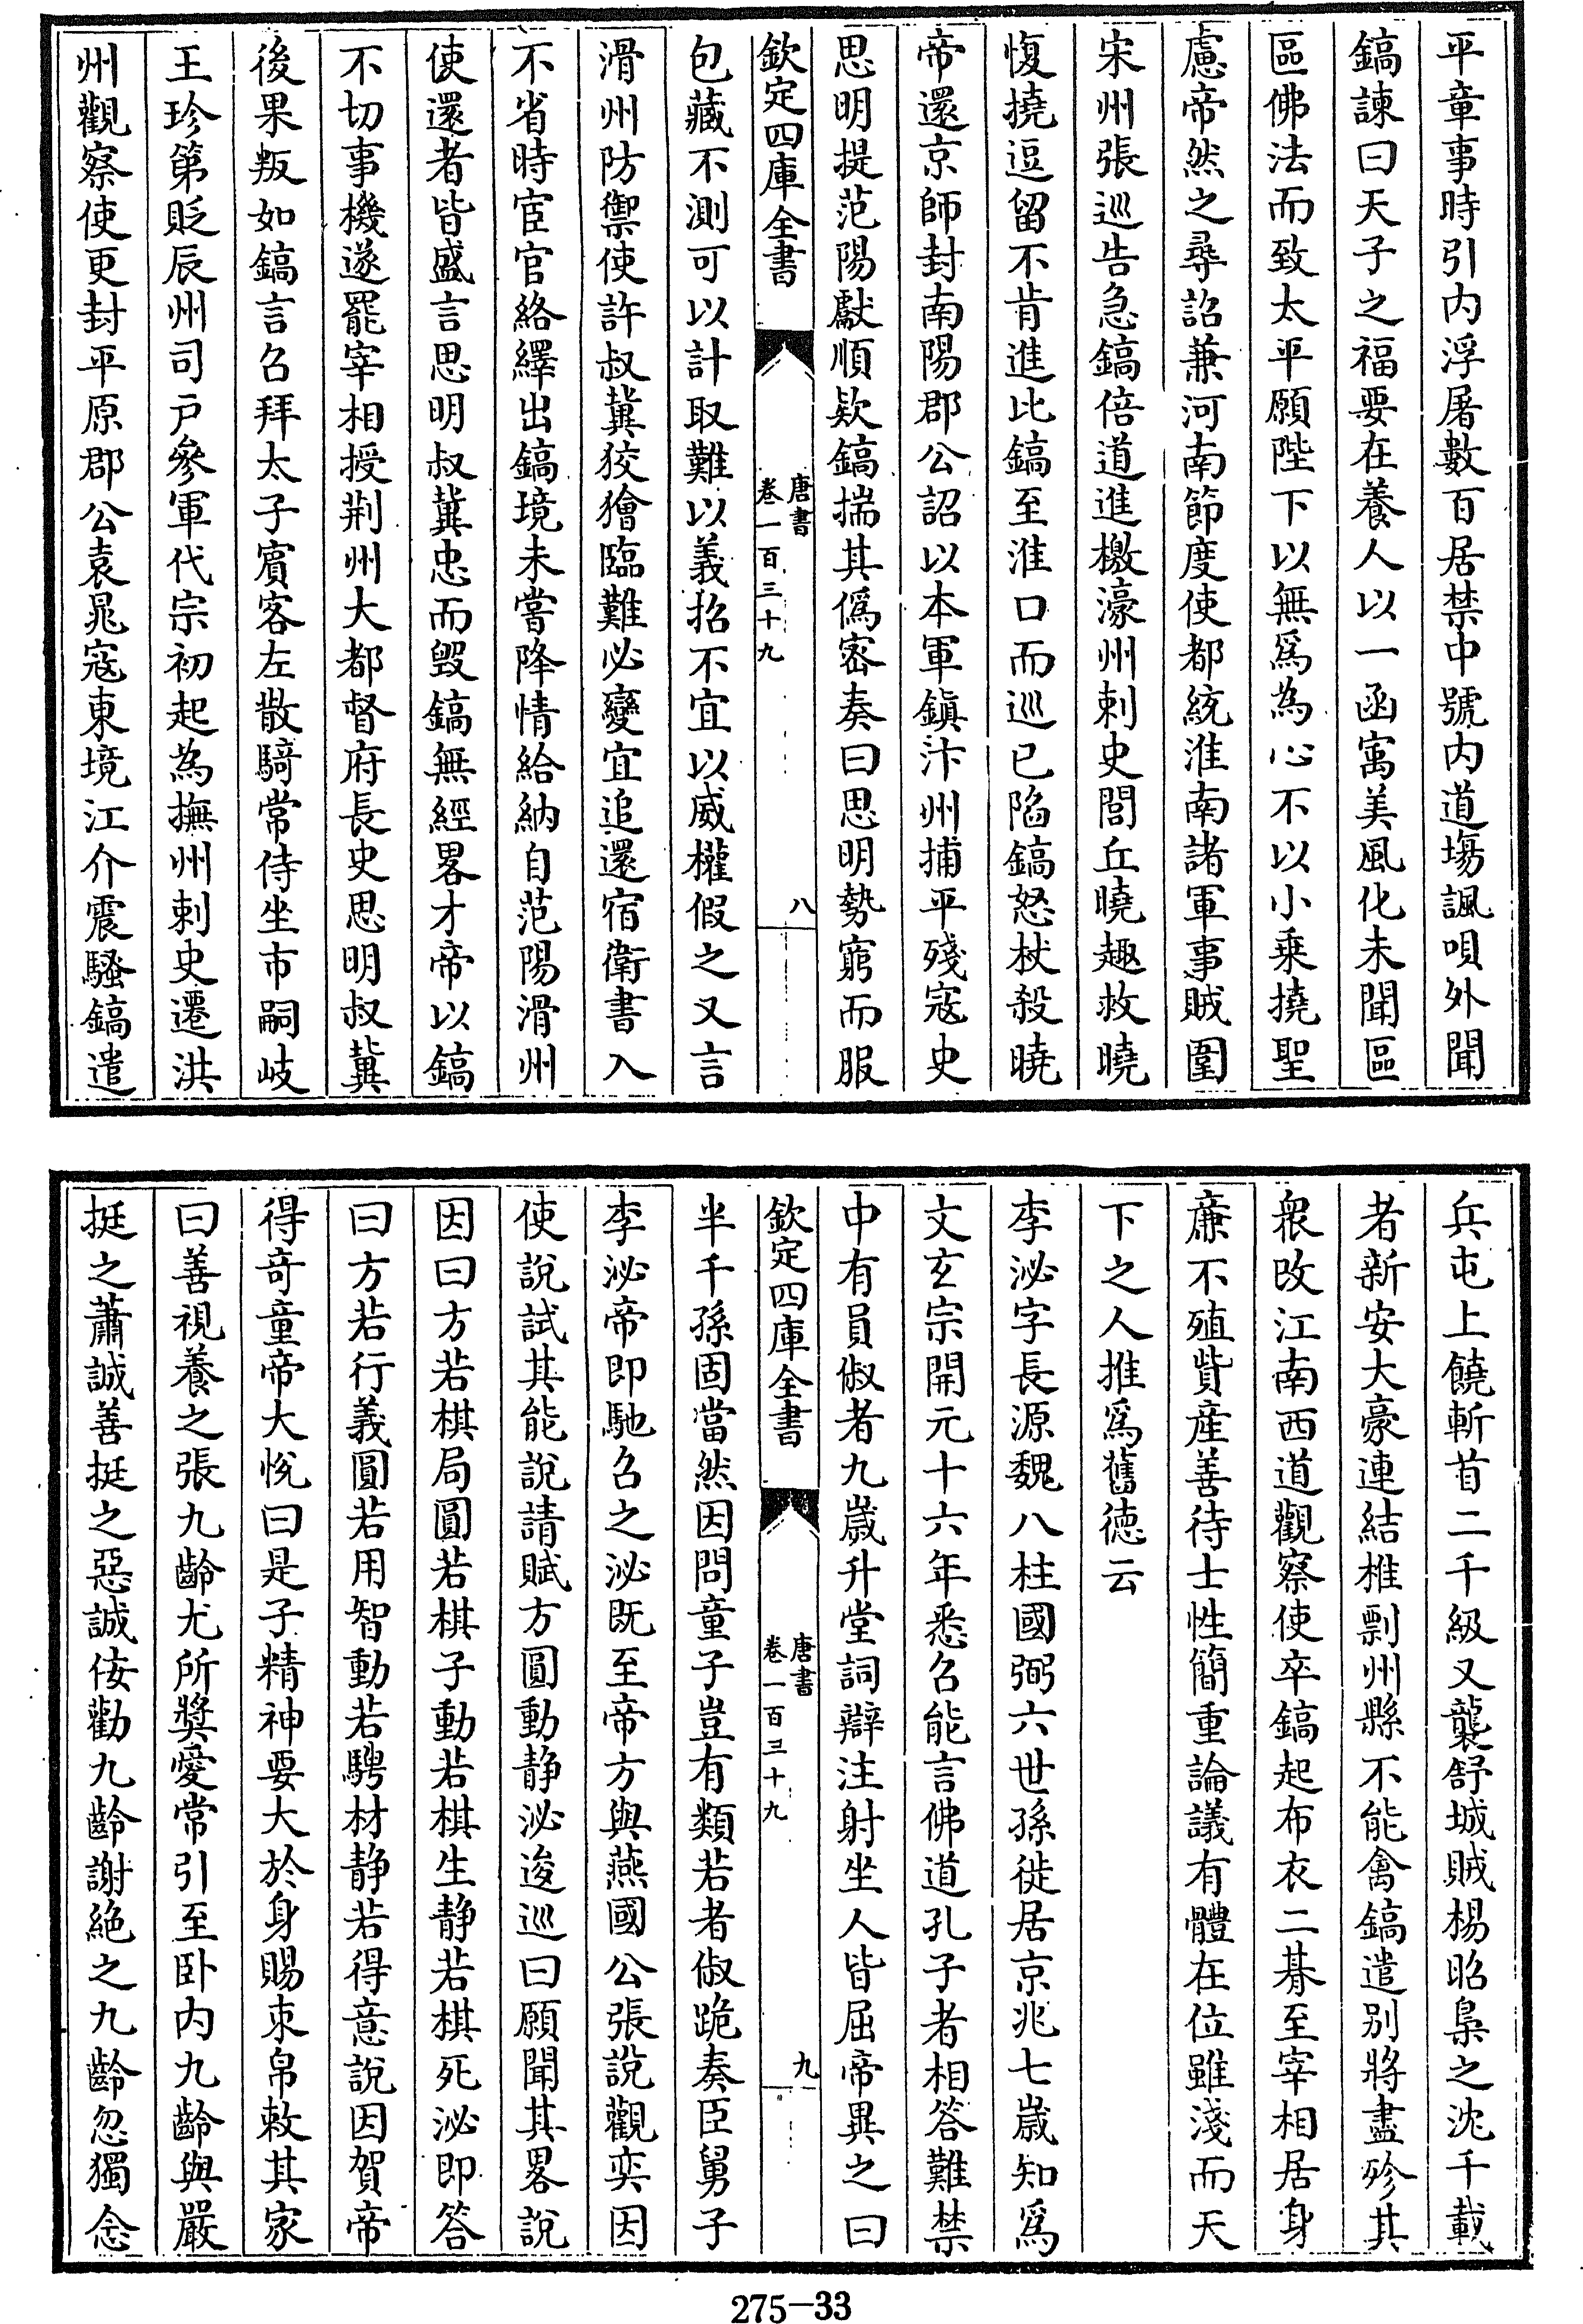 平章事時引内浮屠數百居禁中號内道場諷唄外聞
鎬諫曰天子之福要在養人以一函寓美風化未聞區
區佛法而致太平願陛下以無爲為心不以小乗撓聖
慮帝然之尋詔兼河南節度使都統淮南諸軍事賊圍
宋州張巡告急鎬倍道進檄濠州刺史閭丘曉趣救曉
愎撓逗留不肯進比鎬至淮口而巡已陷鎬怒杖殺曉
帝還京師封南陽郡公詔以本軍鎮汴州捕平殘寇史
思明提范陽獻順欵鎬揣其僞宻奏曰思明勢窮而服
欽定四庫全書
唐書
卷一百三十九
八
包藏不測可以計取難以義招不宜以威權假之又言
滑州防禦使許叔冀狡獪臨難必變宜追還宿衛書入
不省時宦官絡繹出鎬境未嘗降情給納自范陽滑州
使還者皆盛言思明叔冀忠而毁鎬無經畧才帝以鎬
不切事機遂罷宰相授荆州大都督府長史思明叔冀
後果叛如鎬言召拜太子賓客左散騎常侍坐市嗣岐
王珍第貶辰州司户參軍代宗初起為撫州刺史遷洪
州觀察使更封平原郡公袁晁寇東境江介震騷鎬遣
兵屯上饒斬首二千級又襲舒城賊楊昭梟之沈千載
者新安大豪連結椎剽州縣不能禽鎬遣别將盡殄其
衆改江南西道觀察使卒鎬起布衣二朞至宰相居身
亷不殖貲産善待士性簡重論議有體在位雖淺而天
下之人推爲舊徳云
李泌字長源魏八柱國弼六世孫徙居京兆七歳知爲
文玄宗開元十六年悉召能言佛道孔子者相答難禁
中有員俶者九歳升堂詞辯注射坐人皆屈帝異之曰
欽定四庫全書
唐書
卷一百三十九
九
半千孫固當然因問童子豈有類若者俶跪奏臣舅子
李泌帝即馳召之泌既至帝方與燕國公張説觀奕因
使説試其能説請賦方圓動静泌逡巡曰願聞其畧説
因曰方若棋局圓若棋子動若棋生静若棋死泌即答
曰方若行義圓若用智動若騁材静若得意説因賀帝
得奇童帝大悦曰是子精神要大於身賜束帛敕其家
曰善視養之張九齡尤所獎愛常引至卧内九齡與嚴
挺之蕭誠善挺之惡誠佞勸九齡謝絶之九齡忽獨念
275-33